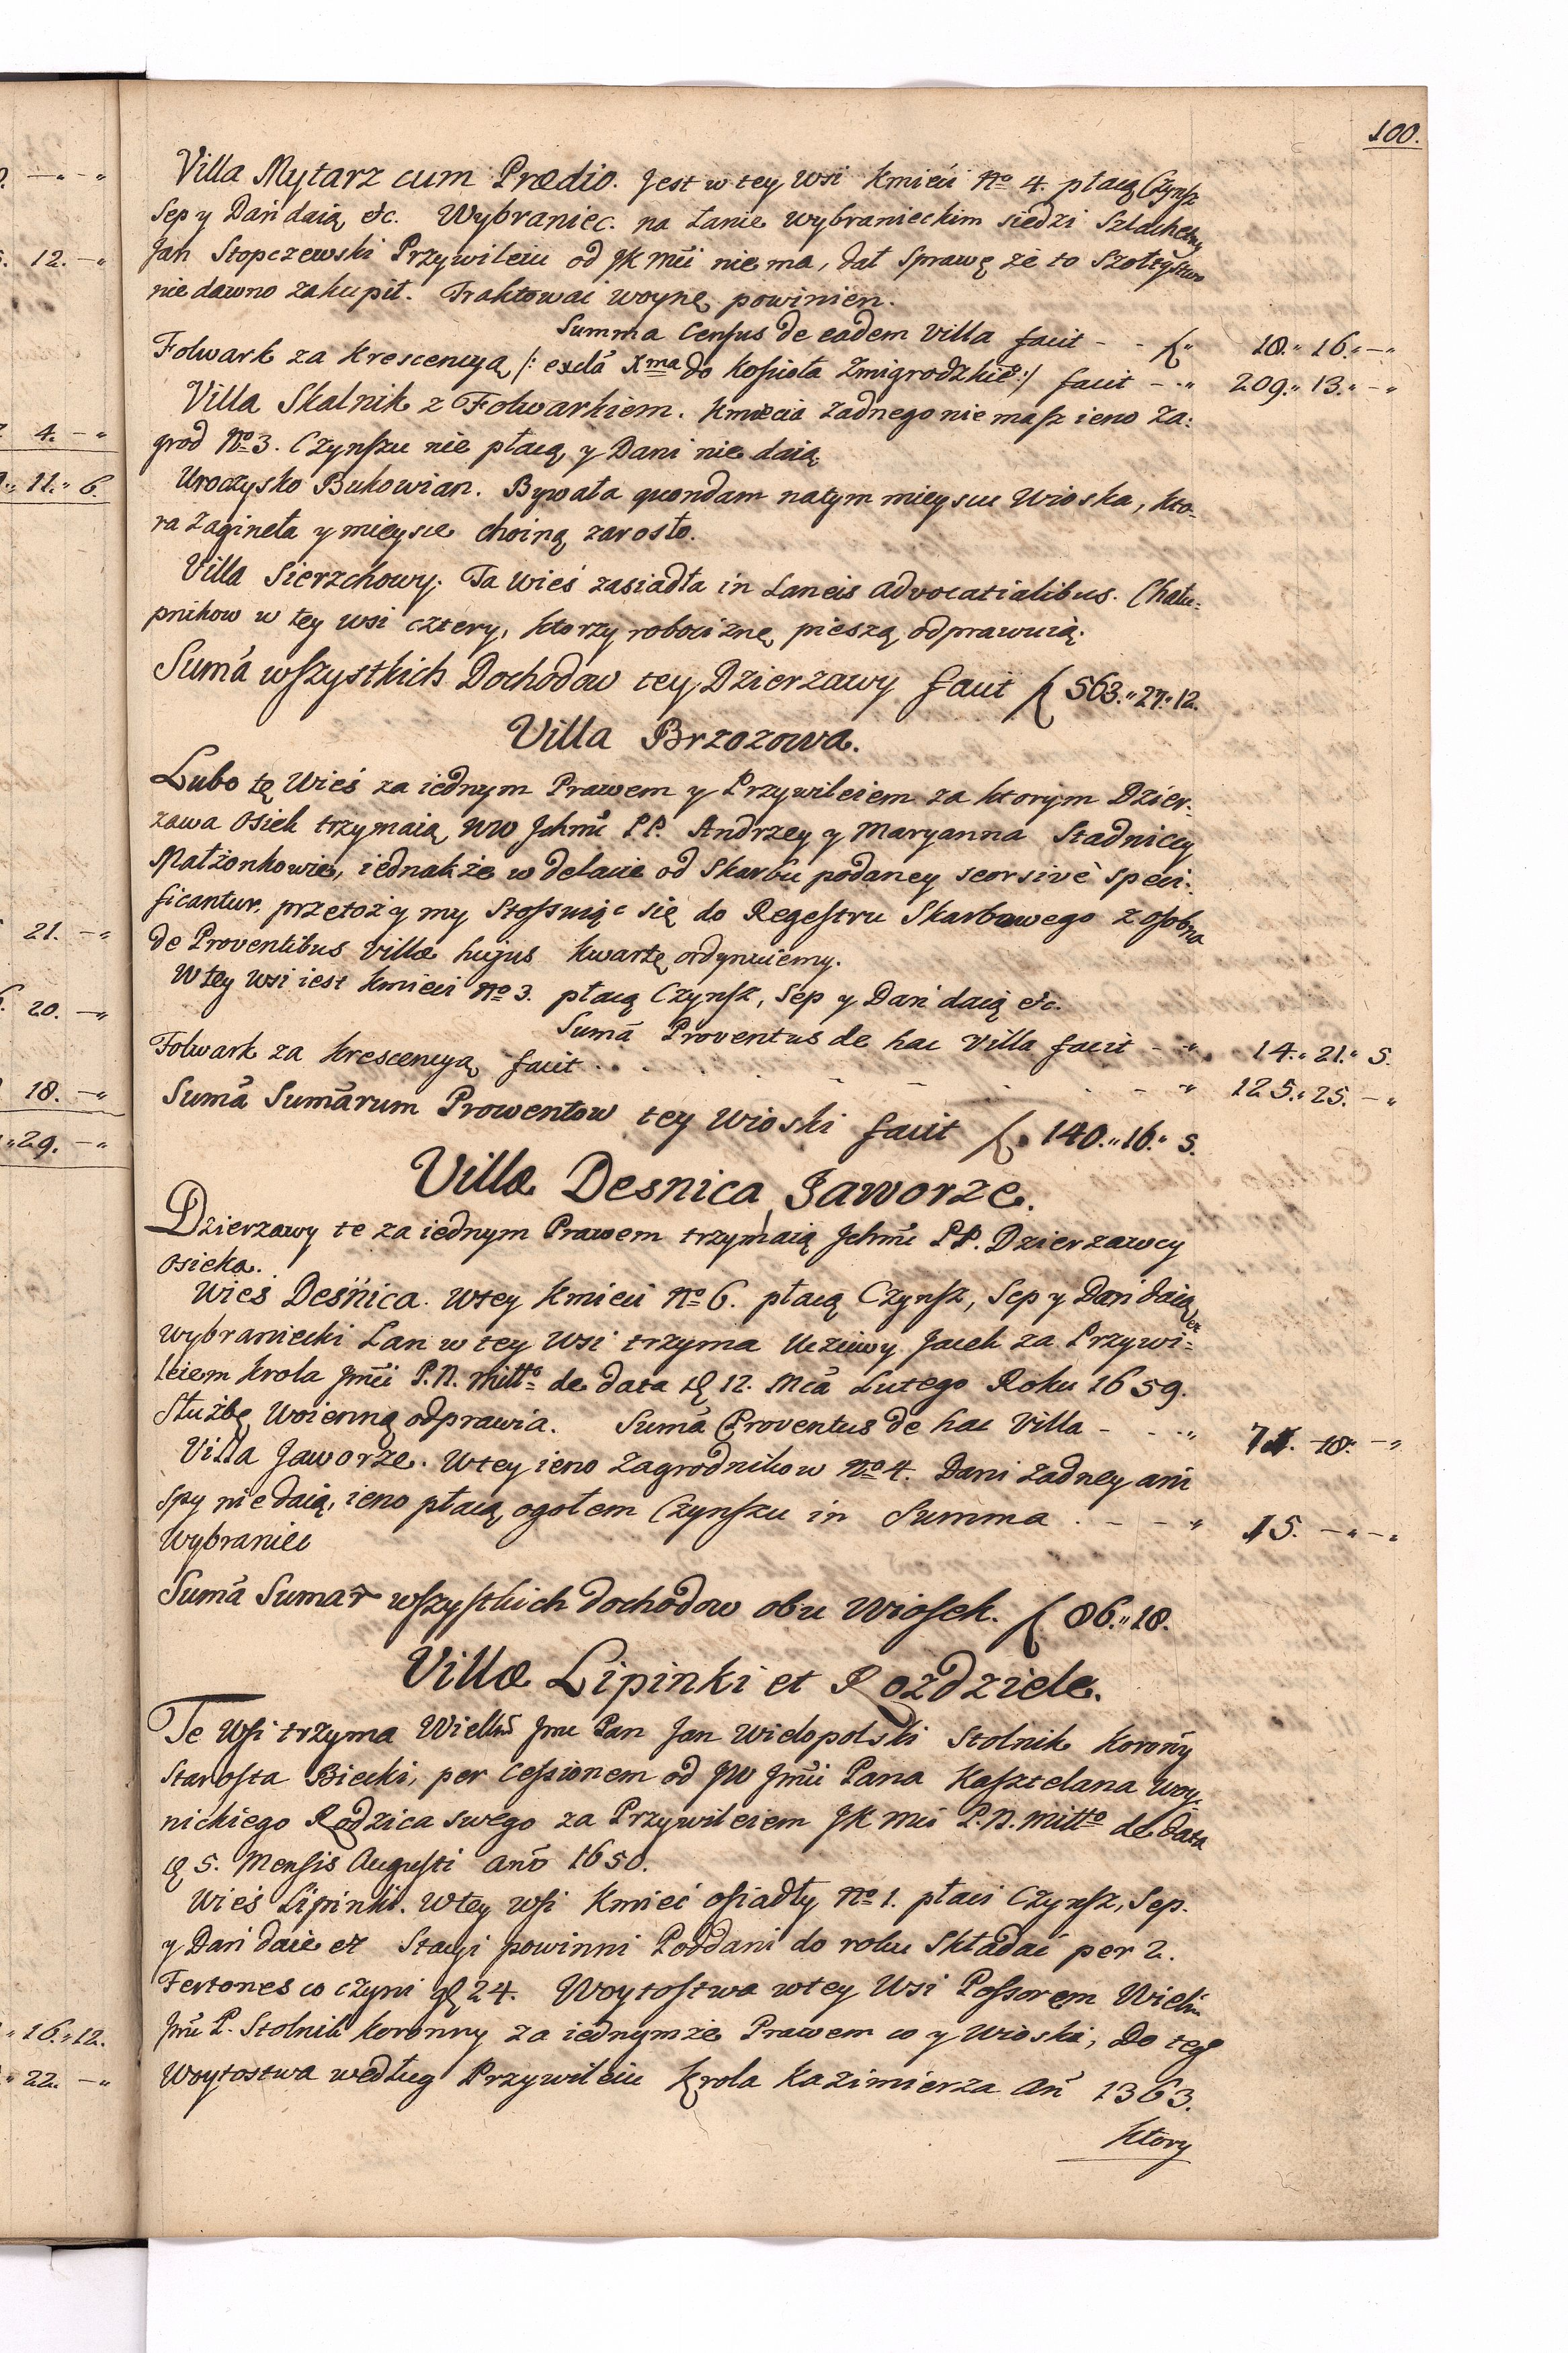 100.
Villa Mytarz cum Prædio. Jest w tey Wsi Kmieci No 4. płacą Czynsz
Sep y Dań daią etc. Wybraniec. na Łanie Wybranieckim siedzi Szlachetny
Jan Stopczewski Przywileiu od JK Mći nie ma, dał Sprawę że to Szołtystwo
nie dawno zakupił. Traktować woynę powinien.
Summa Census de eadem Villa facit - - f" 18." 16." -"
Folwark za Krescencyą /: exclâ Xma do Kosioła Zmigrodzkie:/ facit - " 209." 13." -"
Villa Skalnik z Folwarkiem. Kmiecia zadnego nie masz ieno Za:
grod No 3. Czynszu nie płacą y Dani nie daią
Uroczysko Bukowian. Bywała quondam na tym mieyscu Wioska, kto-
ra zagineła y mieysce choiną zarosło.
Villa Sierzchowy. Ta Wieś zasiadła in Laneis Advocatialibus. Chału-
pnikow w tey wsi cztery, ktorzy robociznę pieszą odprawuią.
Sumã wszystkich Dochodow tey Dzierzawy facit f 563." 27." 12.
Villa Brzozowa.
Lubo tę Wieś za iednym Prawem y Przywileiem za ktorym Dzier-
zawa Osiek trzymaią WW Jchmć PP. Andrzey y Maryanna Stadnicy
Małżonkowie, iednakże w delacie od Skarbu podaney seorsivè speci-
ficantur, przetoż y my Stossuiąc się do Regestru Skarbowego z osobna
de Proventibus Villæ hujus kwartę ordynuiemy.
W tey wsi iest Kmieci No 3. płacą Czynsz, Sep y Dań daią etc.
Sumã Proventus de hac Villa facit - " 14." 21." 5.
Folwark za krescencyą facit . . . - - . - " 125." 25. -"
Sumã Sumãrum Prowentow tey Wioski facit f 140." 16." 5.
Villæ Desnica, Jaworze.
Dzierzawy te za iednym Prawem trzymaią Jchmć PP. Dzierzawcy
Osieka.
Wieś Desnica. W tey Kmieci No 6. płacą Czynsz, Sep y Dań daią etc
Wybraniecki Łan w tey Wsi trzyma Uczciwy Jacek za Przywi-
leiem Krola Jmći P.N. Miłło de data 12. Mcã Lutego Roku 1659.
Służbę Woienną odprawia. Sumã Proventus de hac Villa - - " 71. 18. -"
Villa Jaworze. W tey ieno Zagrodnikow No 4. Dani zadney ani
spy nie daią, ieno płacą ogołem Czynszu in Summa . - - " 15. -" -"
Wybraniec
Sumã Sumar wszystkich dochodow obu Wiosek. f 86." 18.
Villæ Lipinki et Rozdziele.
Te Wsi trzyma Wiellm Jmć Pan Jan Wielopolski Stolnik Koronny
Starosta Biecki, per Cessionem od JW Jmći Pana Kasztelana Woy-
nickiego Rodzica swego za Przywileiem JK Mći P.N. Miłło de data
5. Mensis Augusti Anõ 1650.
Wieś Lipinki. W tey wsi Kmieć osiadły No 1. płaci Czynsz, Sep.
y Dań daie et Stacyi powinni Poddani do roku Składać per 2.
Fertones co czyni g 24. Woytostwa w tey Wsi Possorem Wielm
Jmć P. Stolnik Koronny za iednymże Prawem co y Wioski, Do teg
Woytostwa według Przywileiu Krola Kazimierza An 1363.
ktory
12. -"
4. -"
11." 6.
21. -"
20. -"
18. -"
29. -"
16." 12.
22. -"